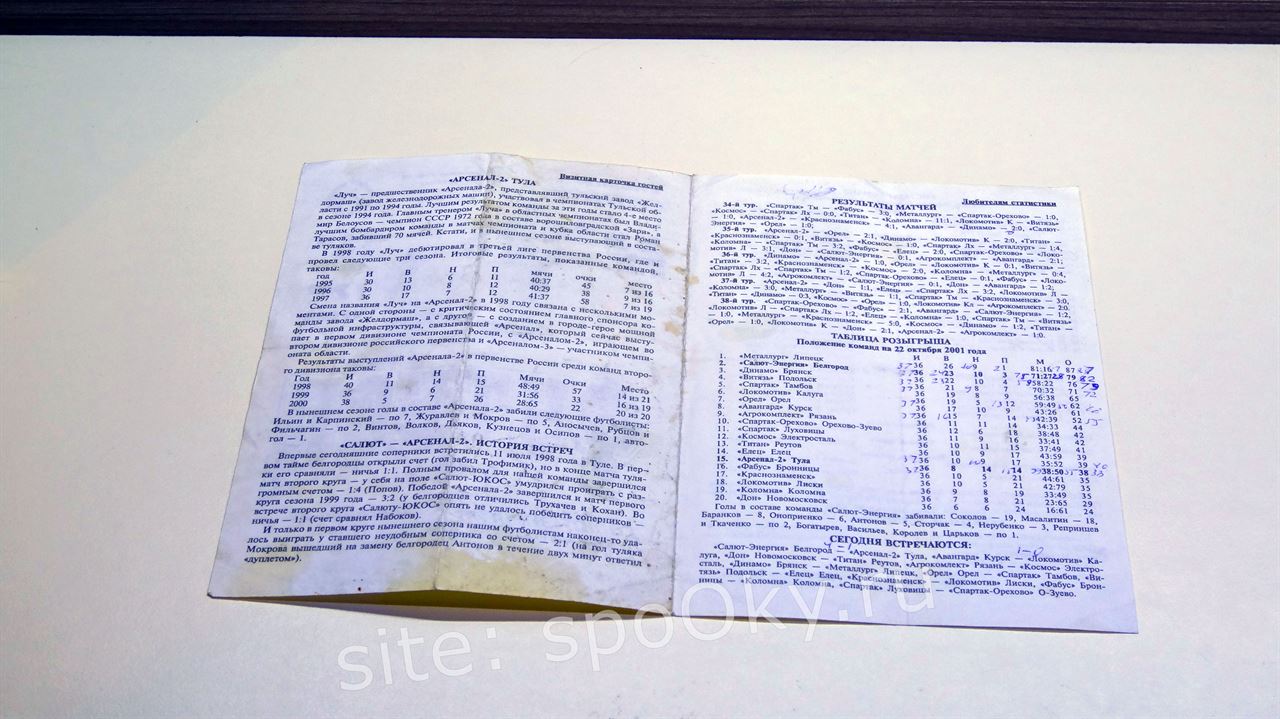 Визитная карточка гостей
«АРСЕНАЛ-2» ТУЛА
«Луч» — предшественник «Арсенала-2», представлявший тульский завод «Жел-
дормаш» (завод железнодорожных машин), участвовал в чемпионатах Тульской об-
ласти с 1991 по 1994 годы. Лучшим результатом команды за эти годы стало 4-е место
в сезоне 1994 года. Главным тренером «Луча» в областных чемпионатах был Влади-
мир Белоусов — чемпион СССР 1972 года в составе ворошиловградской «Зари», а
лучшим бомбардиром команды в матчах чемпионата и кубка области стал Роман
Тарасов, забивший 70 мячей. Кстати, и в нынешнем сезоне выступающий в соста-
ве туляков.
В 1998 году «Луч» дебютировал в третьей лиге первенства России, где и
провел следующие три сезона. Итоговые результаты, показанные командой,
таковы:
год И В Н П мячи очки место
1995 30 13 6 11 40:37 45 7 из 16
1996 30 10 8 12 40:29 38 9 из 16
1997 36 41:37 58 7 из 19
Смена названия «Луч» на «Арсенал-2» в 1998 году связана с несколькими мо-
ментами. С одной стороны — с критическим состоянием главного спонсора ко-
манды завода «Желдормаш», а с другой — с созданием в городе-герое мощной
футбольной инфраструктуры, связывающей «Арсенал», который сейчас высту-
пает в первом дивизионе чемпионата России, с «Арсеналом-2», играющем во
втором дивизионе российского первенства и «Арсеналом-3» — участником чемпи-
оната области.
Результаты выступлений «Арсенала-2» в первенстве России среди команд второ-
го дивизиона таковы:
Год И В Н П Мячи Очки Место
1998 40 11 14 15 48:49 57 14 из 21
1999 36 9 6 21 31:56 33 16 из 19
2000 38 5 7 26 28:65 22 20 из 20
В нынешнем сезоне голы в составе «Арсенала-2» забили следующие футболисты:
Ильин и Карпинский — по 7, Журавлев и Мокров — по 5, Аносычев, Рубцов и
Фильчагин — по 2, Винтов, Волков, Дьяков, Кузнецов и Осипов — по 1, авто-
гол — 1.
«САЛЮТ» — «АРСЕНАЛ-2». ИСТОРИЯ ВСТРЕЧ
Впервые сегодняшние соперники встретились 11 июля 1998 года в Туле. В пер-
вом тайме белгородцы открыли счет (гол забил Трофимик), но в конце матча туля-
ки его сравняли — ничья 1:1. Полным провалом для нашей команды завершился
матч второго круга — у себя на поле «Салют-ЮКОС» умудрился проиграть с раз-
громным счетом — 1:4 (Попов). Победой «Арсенала-2» завершился и матч первого
круга сезона 1999 — 3:2 (у белгородцев отличились Трухачев и Кохан). Во
встрече второго круга «Салюту-ЮКОС» опять не удалось победить соперников —
ничья — 1:1 (счет сравнял Набоков).
И только в первом круге нынешнего сезона нашим футболистам наконец-то уда-
лось выиграть у ставшего неудобным соперника со счетом — 2:1 (на гол туляка
Мокрова вышедший на замену белгородец Антонов в течение двух минут ответил
«дуплетом»).
Любителям статистики
РЕЗУЛЬТАТЫ МАТЧЕЙ
34-й тур. «Спартак» Тм — «Фабус» — 3:0, «Металлург» — «Спартак-Орехово» — 1:0,
«Космос» — «Спартак» Лх — 0:0, «Титан» — «Коломна» — 11:1, «Локомотив» К — «Витязь»
— 1:0, «Арсенал-2» — «Краснознаменск» — 4:1, «Авангард» — «Динамо» — 2:0, «Салют-
Энергия» — «Орел» — 1:0.
35-й тур. «Арсенал-2» — «Орел» — 2:1, «Динамо» — «Локомотив» К — 2:0, «Титан» —
«Краснознаменск» — 0:1, «Витязь» — «Космос» — 1:0, «Спартак» Лх — «Металлург» — 1:4,
«Коломна» — «Спартак» Тм — 3:2, «Фабус» — «Елец» — 2:0, «Спартак-Орехово» — «Локо-
мотив» Л — 3:1, «Дон» — «Салют-Энергия» — 0:1, «Агрокомплект» — «Авангард» — 2:1;
36-й тур. «Динамо» — «Арсенал-2» — 1:0, «Орел» — «Локомотив» К — 0:1, «Витязь» —
«Титан» — 3:2, «Краснознаменск» — «Космос» — 2:0, «Коломна» — «Металлург» — 0:4,
«Спартак» Лх — «Спартак» Тм — 1:2, «Спартак-Орехово» — «Елец» — 0:1, «Фабус» — «Локо-
мотив» Л — 4:2, «Агрокомплект» — «Салют-Энергия» — 0:1, «Дон» — «Авангард» — 1:2;
37-й тур. «Арсенал-2» — «Дон» — 1:1, «Елец» — «Спартак» Лх — 3:2, «Локомотив» Л —
— 3:0, «Металлург» — «Витязь» — 1:1, «Спартак» Тм — «Краснознаменск» — 3:0,
«Титан» — «Динамо» — 0:3, «Космос» — «Орел» — 1:0, «Локомотив» Кл — «Агрокомплект» — 2:0,
38-й тур. «Спартак-Орехово» — «Фабус» — 2:1, «Авангард» — «Салют-Энергия» — 1:2,
«Спартак» Лх — 1:2, «Елец» — «Коломна» — 1:0, «Спартак» Тм — «Витязь»
— 1:0, «Металлург» — «Краснознаменск» — 5:0, «Космос» — «Динамо» — 1:2, «Титан» —
«Орел» — 1:0, «Локомотив» К — «Дон» — 2:1, «Арсенал-2» — «Агрокомплект» — 1:0.
ТАБЛИЦА РОЗЫГРЫША
Положение команд на 22 октября 2001 года
И В Н П М О
1. «Металлург» Липецк 36 26 81:16 87
2. «Салют-Энергия» Белгород 36 10 3 71:27
3. «Динамо» Брянск 36 10 4 58:22 76
4. «Витязь» Подольск 36 21 8 70:32 71
5. «Спартак» Тамбов 36 19 8 9 56:38 65
6. «Локомотив» Калуга 36 19 5 12 59:49 62
7. «Орел» Орел 36 17 10 9 43:26 61
8. «Авангард» Курск 36 7 42:39
9. «Агрокомплект» Рязань 36 11 11 14 34:33 44
10. «Спартак-Орехово» Орехово-Зуево 36 12 6 18 38:48 42
11. «Спартак» Луховицы 36 11 9 16 33:41 42
12. «Космос» Электросталь 36 10 11 15 37:49 41
13. «Титан» Реутов 36 10 9 17 43:59 39
14. «Елец» Елец 36 10 9 17 35:52 39
15. «Арсенал-2» Тула 36 8 14 14 38:50 38
16. «Фабус» Бронницы 36 10 5 21 44:61 35
17. «Краснознаменск» 36 10 5 21 42:79 35
18. «Локомотив» Лиски 36 9 8 19 33:49 35
19. «Коломна» Коломна 36 7 8 21 23:65 29
20. «Дон» Новомосковск 36 6 6 24 16:61 24
Голы в составе команды «Салют-Энергия» забивали: Соколов — 19, Масалитин — 18,
Баранков — 8, Оноприенко — 6, Антонов — 5, Сторчак — 4, Нерубенко — 3, Репринцев
и Ткаченко — по 2, Богатырев, Васильев, Королев и Царьков — по 1.
СЕГОДНЯ ВСТРЕЧАЮТСЯ:
«Салют-Энергия» Белгород — «Арсенал-2» Тула, «Авангард» Курск — «Локомотив» Ка-
луга, «Дон» Новомосковск — «Титан» Реутов, «Агрокомлект» Рязань — «Космос» Электро-
сталь, «Динамо» Брянск — «Металлург» Липецк, «Орел» Орел — «Спартак» Тамбов, «Ви-
тязь» Подольск — «Елец» Елец, «Краснознаменск» — «Локомотив» Лиски, «Фабус» Брон-
ницы — «Коломна» Коломна, «Спартак» Луховицы — «Спартак-Орехово» О-Зуево.
site: spoOky.ru